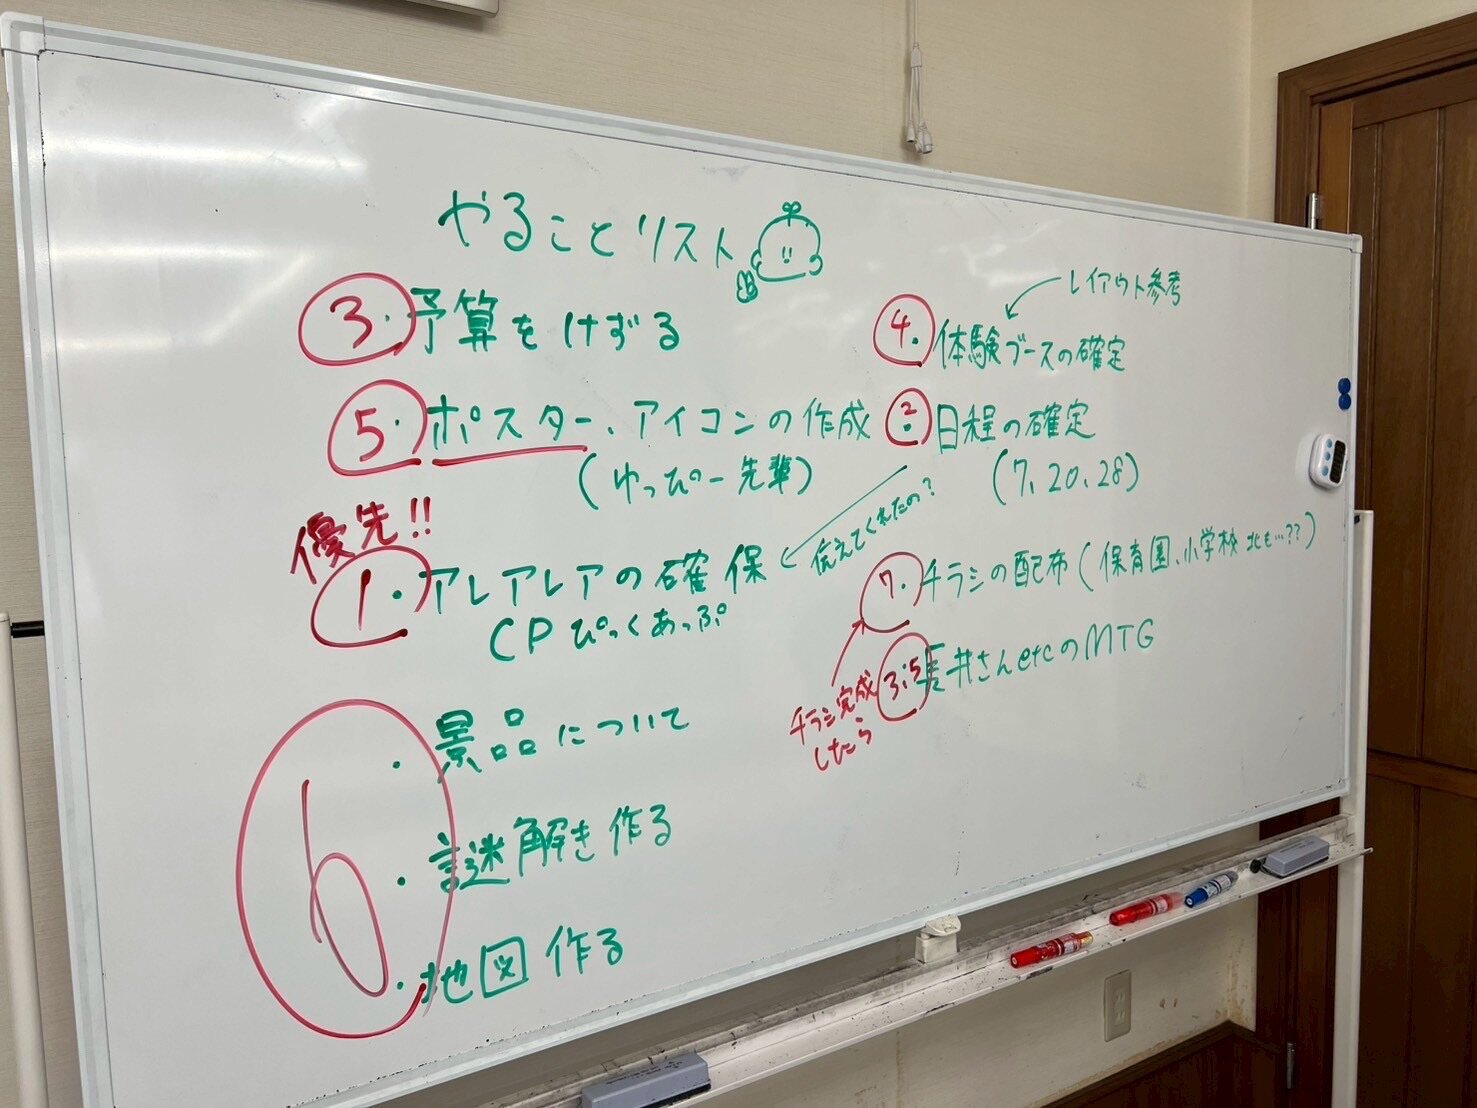 やることリスト
3. 予算をけずる
5. ポスター、アイコンの作成
(ゆっぴー先輩)
優先!!
1. アレアレアの確保
伝えてくれたの?
CPぴっくあっぷ
6
・景品について
・謎解き作る
・地図作る
レイアウト参考
4. 体験ブースの確定
2. 日程の確定
(7、20、28)
7. チラシの配布(保育園、小学校 北も…??)
チラシ完成
したら
3.5 長井さんetcのMTG